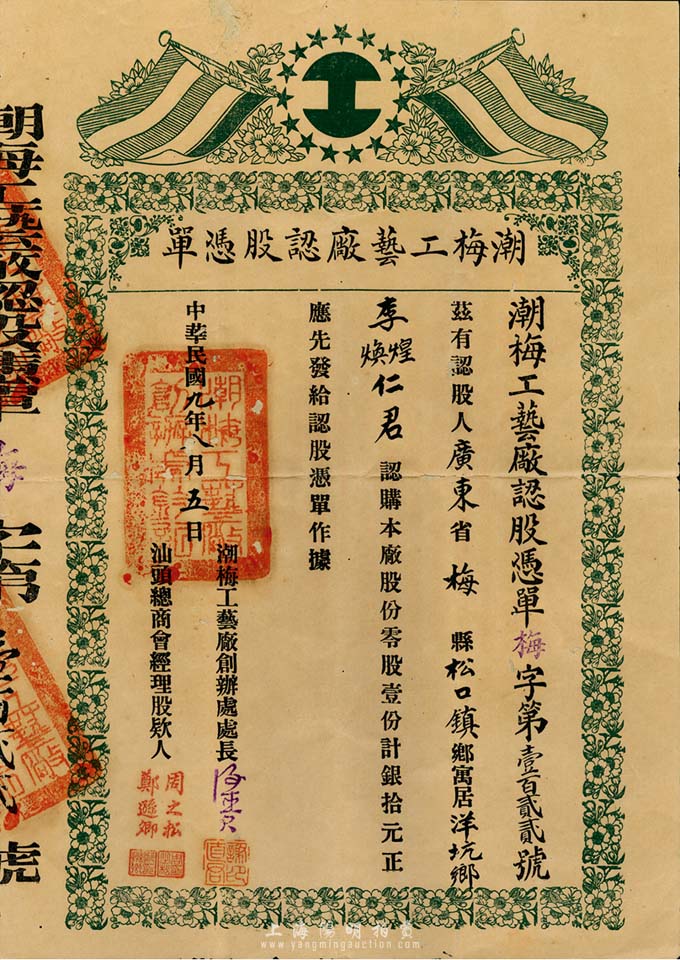 單憑股認廠藝工梅潮
潮梅工藝廠認股憑單梅字第壹百貳貳號
茲有認股人廣東省梅縣松口鎮鄉寓居洋坑鄉
李煌煥仁君認購本廠股份零股壹份計銀拾元正
應先發給認股憑單作據
中華民國九年八月五日
潮梅工藝廠創辦處處長
汕頭總商會經理股欵人
周之松
鄭遜卿
上海陽明拍賣
www.yangmingauction.com